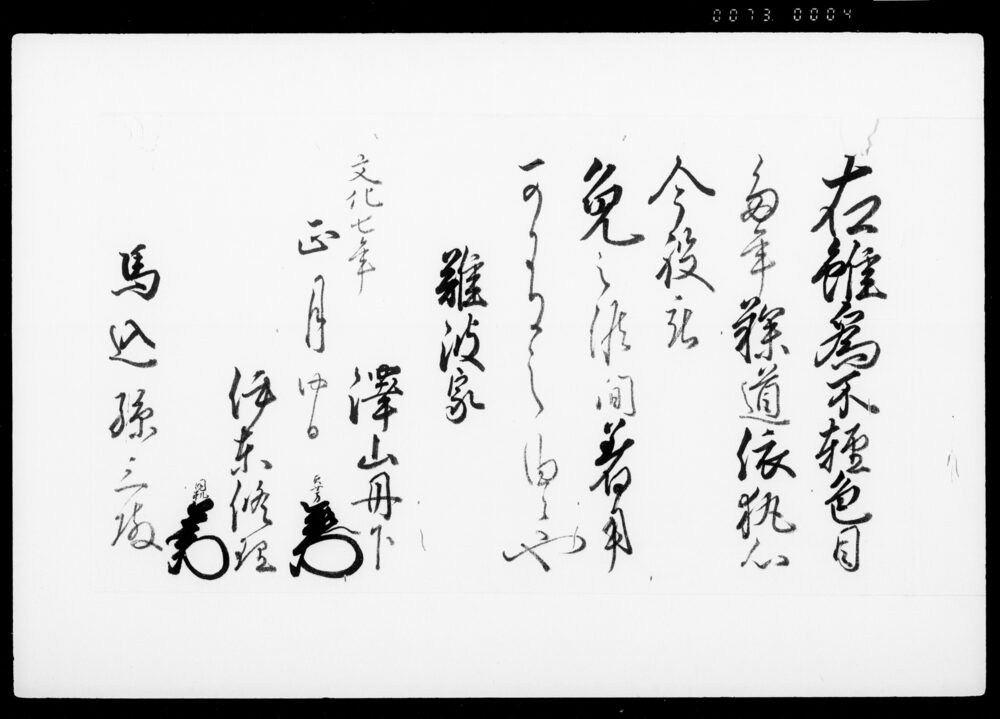 0073. 0004
右雖爲不輕色目
年鞠道依執心
今般
免之候間着用
可有之
難波家
文化七年
正月
澤山丹下
伊東修理
馬込孫三殿